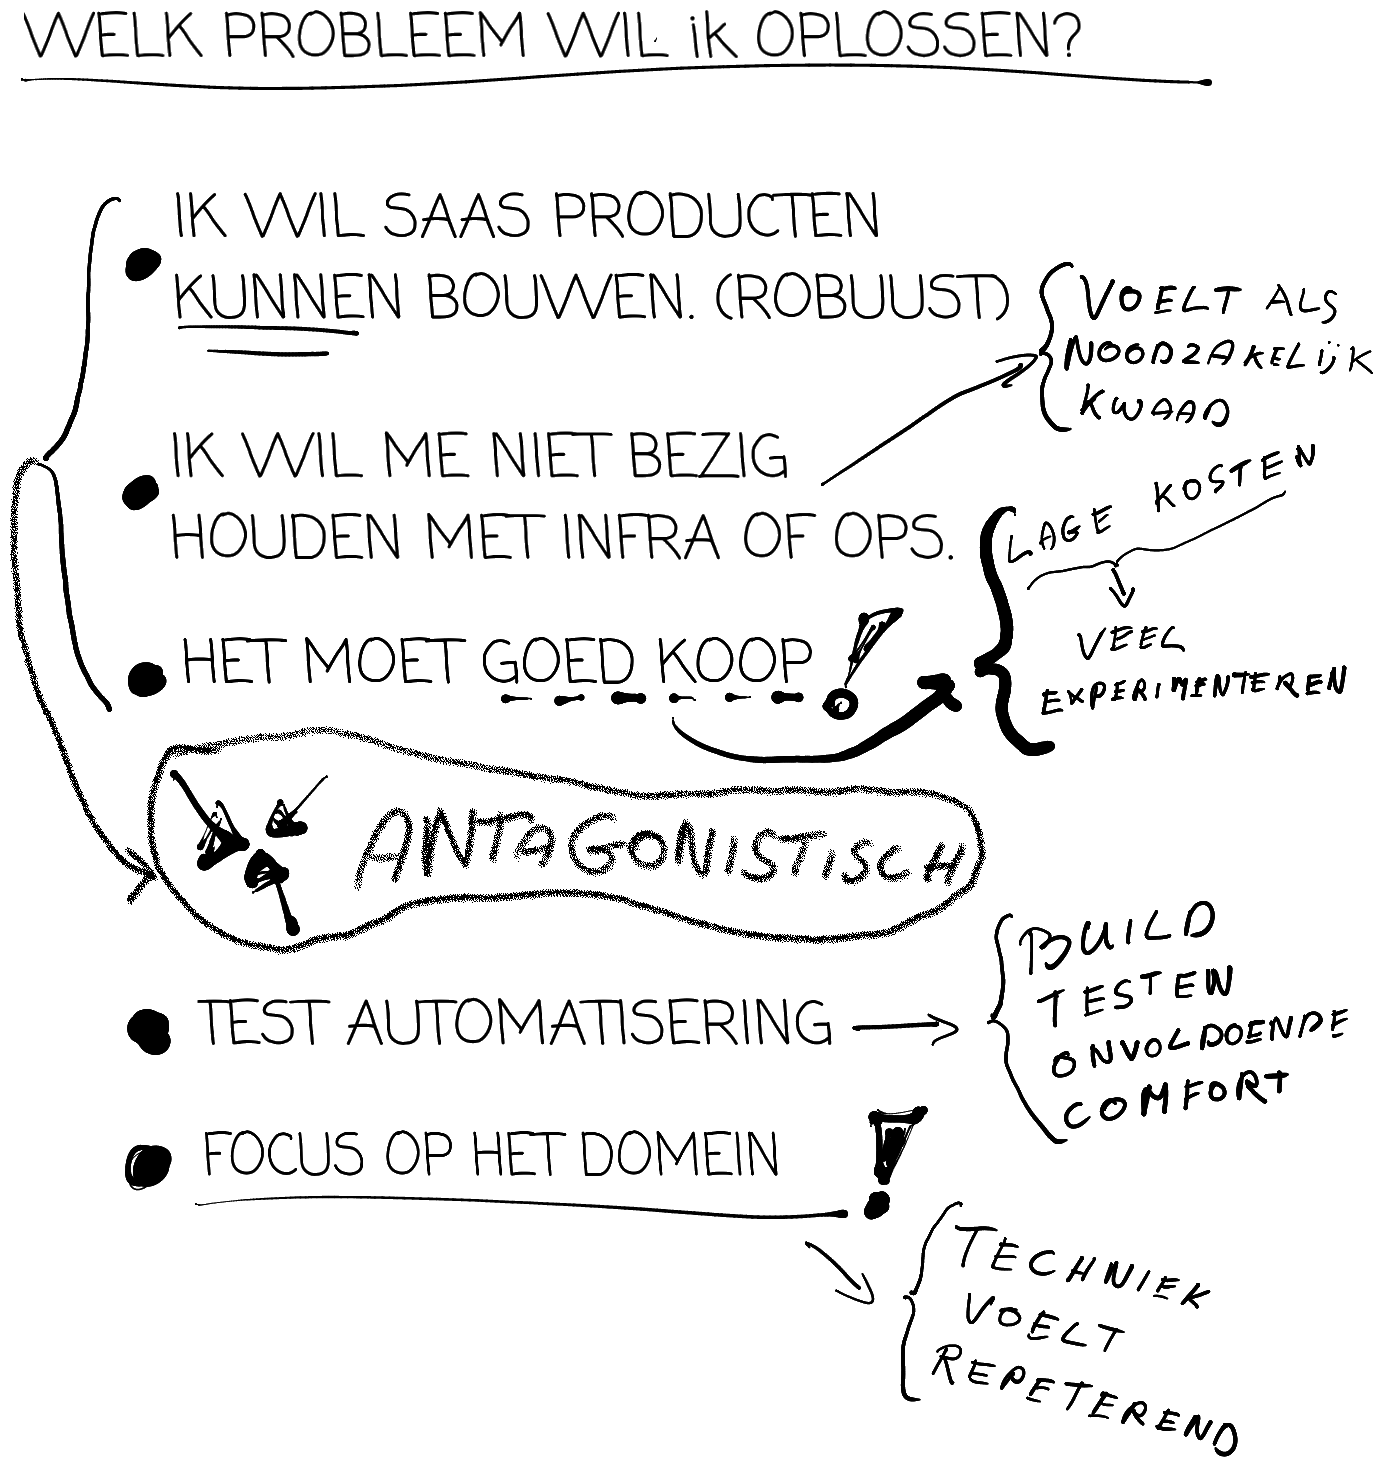 WELK PROBLEEM WIL ik OPLOSSEN?
IK WIL SAAS PRODUCTEN
KUNNEN BOUWEN. (ROBUUST)
VOELT ALS
NOODZAKELIJK
KWAAD
IK WIL ME NIET BEZIG
HOUDEN MET INFRA OF OPS.
LAGE KOSTEN
VEEL
EXPERIMENTEREN
HET MOET GOED KOOP!
ANTAGONISTISCH
TEST AUTOMATISERING
BUILD
TESTEN
ONVOLDOENDE
COMFORT
FOCUS OP HET DOMEIN!
TECHNIEK
VOELT
REPETEREND